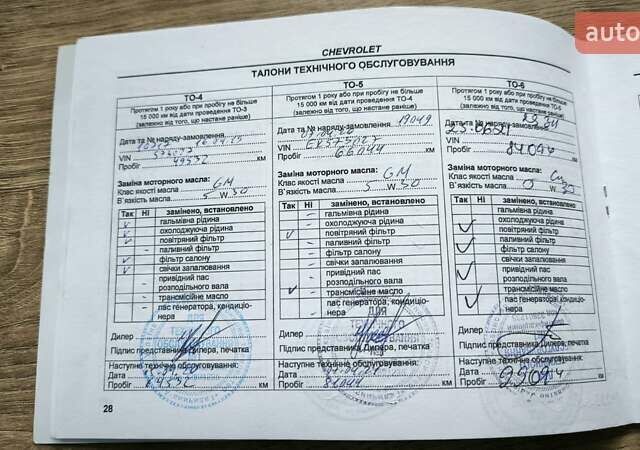 auto
CHEVROLET
ТАЛОНИ ТЕХНІЧНОГО ОБСЛУГОВУВАННЯ
ТО-4
Протягом 1 року або при пробігу не більше
15 000 км від дати проведення ТО-3
(залежно від того, що настане раніше)
Дата та № наряду-замовлення
VIN
Пробіг 49532 км
Заміна моторного масла:
Клас якості масла GM
В`язкість масла 5 W 30
Так Ні замінено, встановлено
гальмівна рідина
охолоджуюча рідина
повітряний фільтр
паливний фільтр
фільтр салону
свічки запалювання
привідний пас
розподільного вала
трансмісійне масло
пас генератора, кондиціо-
нера
Дилер
Підпис представника Дилера, печатка
Наступне технічне обслуговування:
Дата
Пробіг 64532 км
ТО-5
Протягом 1 року або при пробігу не більше
15 000 км від дати проведення ТО-4
(залежно від того, що настане раніше)
Дата та № наряду-замовлення 19049
VIN
Пробіг 66044 км
Заміна моторного масла:
Клас якості масла GM
В`язкість масла 5 W 30
Так Ні замінено, встановлено
гальмівна рідина
охолоджуюча рідина
повітряний фільтр
паливний фільтр
фільтр салону
свічки запалювання
привідний пас
розподільного вала
трансмісійне масло
пас генератора, кондиціо-
нера
Дилер
Підпис представника Дилера, печатка
Наступне технічне обслуговування:
Дата
Пробіг 81044 км
ТО-6
Протягом 1 року або при пробігу не більше
15 000 км від дати проведення ТО-5
(залежно від того, що настане раніше)
Дата та № наряду-замовлення
VIN
Пробіг 84094 км
Заміна моторного масла:
Клас якості масла
В`язкість масла 0 W 30
Так Ні замінено, встановлено
гальмівна рідина
охолоджуюча рідина
повітряний фільтр
паливний фільтр
фільтр салону
свічки запалювання
привідний пас
розподільного вала
трансмісійне масло
пас генератора, кондиціо-
нера
Дилер
Підпис представника Дилера, печатка
Наступне технічне обслуговування:
Дата
Пробіг 99094 км
28